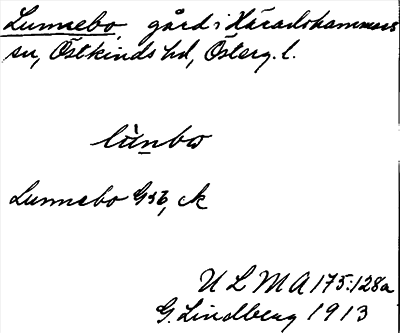 Lunnebo, gård i Häradshammars
sn, Östkinds hd, Österg. l.
lùnbω
Lunnebo Gsб, ck
U L M A 175:128a
G. Lindberg 1913